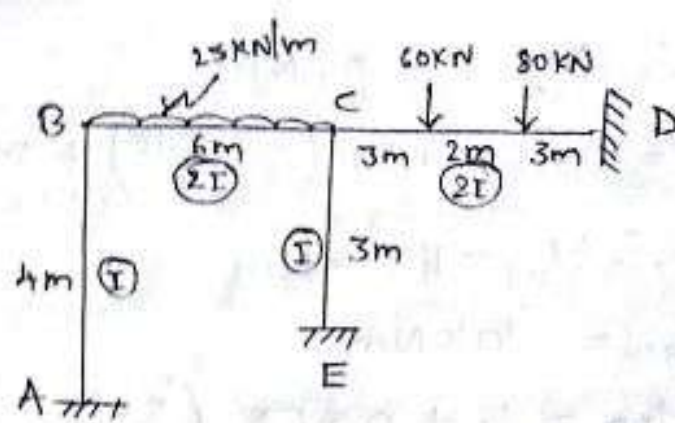 25KN/m
60KN 80KN
B C D
6m 3m 2m 3m
2I 2I
4m I I 3m
E
A